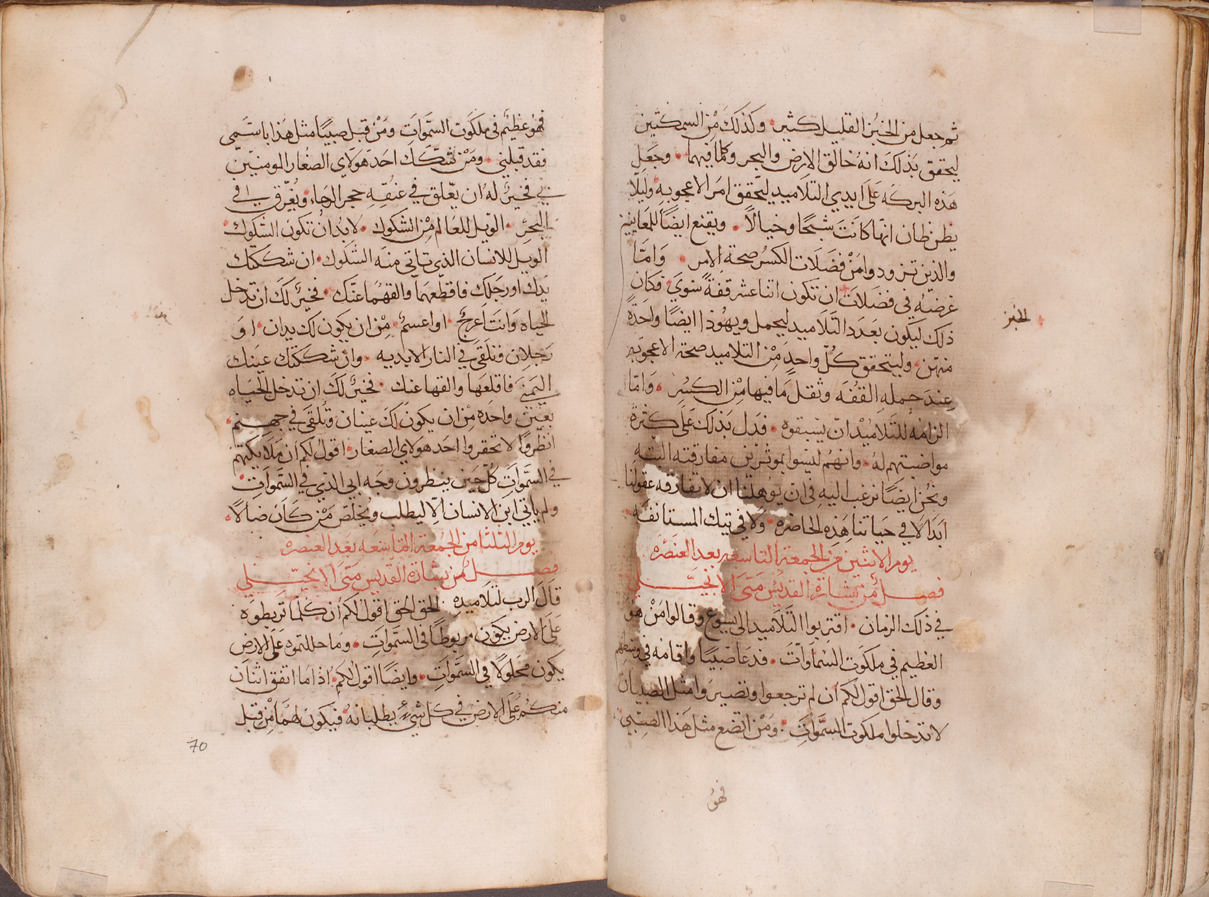 ثم جعل من الخبز القليل كثير وكذلك من السمكتين
ليحقق بذلك انه خالق الارض والبحر وكلما فيهما وجعل
هذه البركه على ايدي التلاميد لتحقق امر الاعجوبه وليلا
يظن ظان انها كانت شبحا وخيالا ويقنع ايضا للمعاينين
والذين تزودوا من فضلات الكسر صحة الامر واما
غرضه في فضلات ان تكون اثنا عشر قفة سوي فكان
ذلك ليكون بعدد التلاميد ليحمل ويهودا ايضا واحدة
منهن وليتحقق كل واحد من التلاميد صحة الاعجوبه
عند حمله القفه وثقل ما فيها من الكسر واما
الزامه للتلاميد ان يسبقوه فدل بذلك على كثرة
مواضبتهم له وانهم ليسوا موثرين مفارقته البته
ونحن ايضا نرغب اليه في ان يوهلنا ان لا يفارقه عقولنا
ابدا لا في حياتنا هذه الحاضره ولا في تيك المستانفه
يوم الاثنين من الجمعة التاسعه بعد العنصره
فصل من بشارة القديس متى الانجيلي
في ذلك الزمان اقتربوا التلاميد الى يسوع وقالوا من هو
العظيم في ملكوت السماوات فدعا صبيا واقامه في وسطهم
وقال الحق اقول لكم ان لم ترجعوا وتصيروا مثل الصبيان
لا تدخلوا ملكوت السموات ومن اتضع مثل هذا الصبي
فهو
الخبز
فهو عظيم في ملكوت السموات ومن قبل صبيا مثل هذا باسمي
فقد قبلني ومن شكك احد هولاي الصغار المومنين
بي فخير له ان يعلق في عنقه حجر الرحاء ويغرق في
البحر الويل للعالم من الشكوك لابد ان تكون الشكوك
الويل للانسان الذي تاتي منه الشكوك ان شككتك
يدك او رجلك فاقطعها والقهما عنك فخير لك ان تدخل
الحياه وانت اعرج او اعسم من ان يكون لك يدان او
رجلان وتلقى في النار الابديه وان شككتك عينك
اليمنى فاقلعها والقها عنك فخير لك ان تدخل الحياه
بعين واحده من ان يكون لك عينان وتلقى في جهنم
انظروا لا تحقروا احد هولاي الصغار اقول لكم ان ملايكتهم
في السموات كل حين ينظرون وجه ابي الذي في السموات
ولم ياتي ابن الانسان الا ليطلب ويخلص من كان ضالا
يوم الثلثا من الجمعة التاسعه بعد العنصره
فصل من بشارة القديس متى الانجيلي
قال الرب لتلاميده الحق الحق اقول لكم ان كلما تربطوه
على الارض يكون مربوطا في السموات وما حللتموه على الارض
يكون محلولا في السموات وايضا اقول لكم اذا ما اتفق اثنان
منكم على الارض في كل شيء يطلبانه فيكون لهما من قبل
70